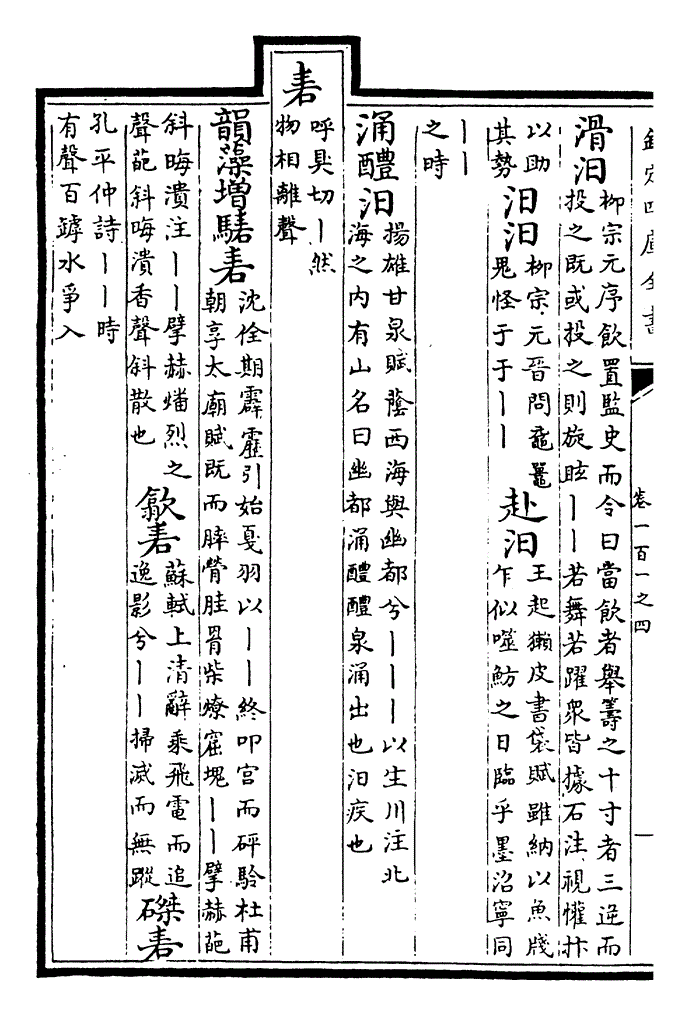 欽定四庫全書　卷一百一之四　一
滑汩
柳宗元序飲置監史而令曰當飲者舉籌之十寸者三逆而
投之既或投之則旋眩丨丨若舞若躍衆皆據石注視懽抃
以助
其勢
汨汨
柳宗元晉問黿鼉
鬼怪于于丨丨
赴汨
王起獺皮書袋賦雖納以魚牋
乍似噬魴之日臨乎墨沼寧同
丨丨
之時
涌醴汩
揚雄甘泉賦蔭西海與幽都兮丨丨丨以生川注北
海之内有山名曰幽都涌醴醴泉涌出也汩疾也
砉
呼狊切丨然
物相離聲
韻藻增騞砉
沈佺期霹靂引始戛羽以丨丨終叩宫而砰駖杜甫
朝享太廟賦既而膟膋胜骨柴燎窟塊丨丨擘赫葩
斜晦潰注丨丨擘赫燔烈之
聲葩斜晦潰香聲斜散也
歙砉
蘇軾上清辭乘飛電而追
逸影兮丨丨掃滅而無蹤
磔砉
孔平仲詩丨丨時
有聲百罅水爭入